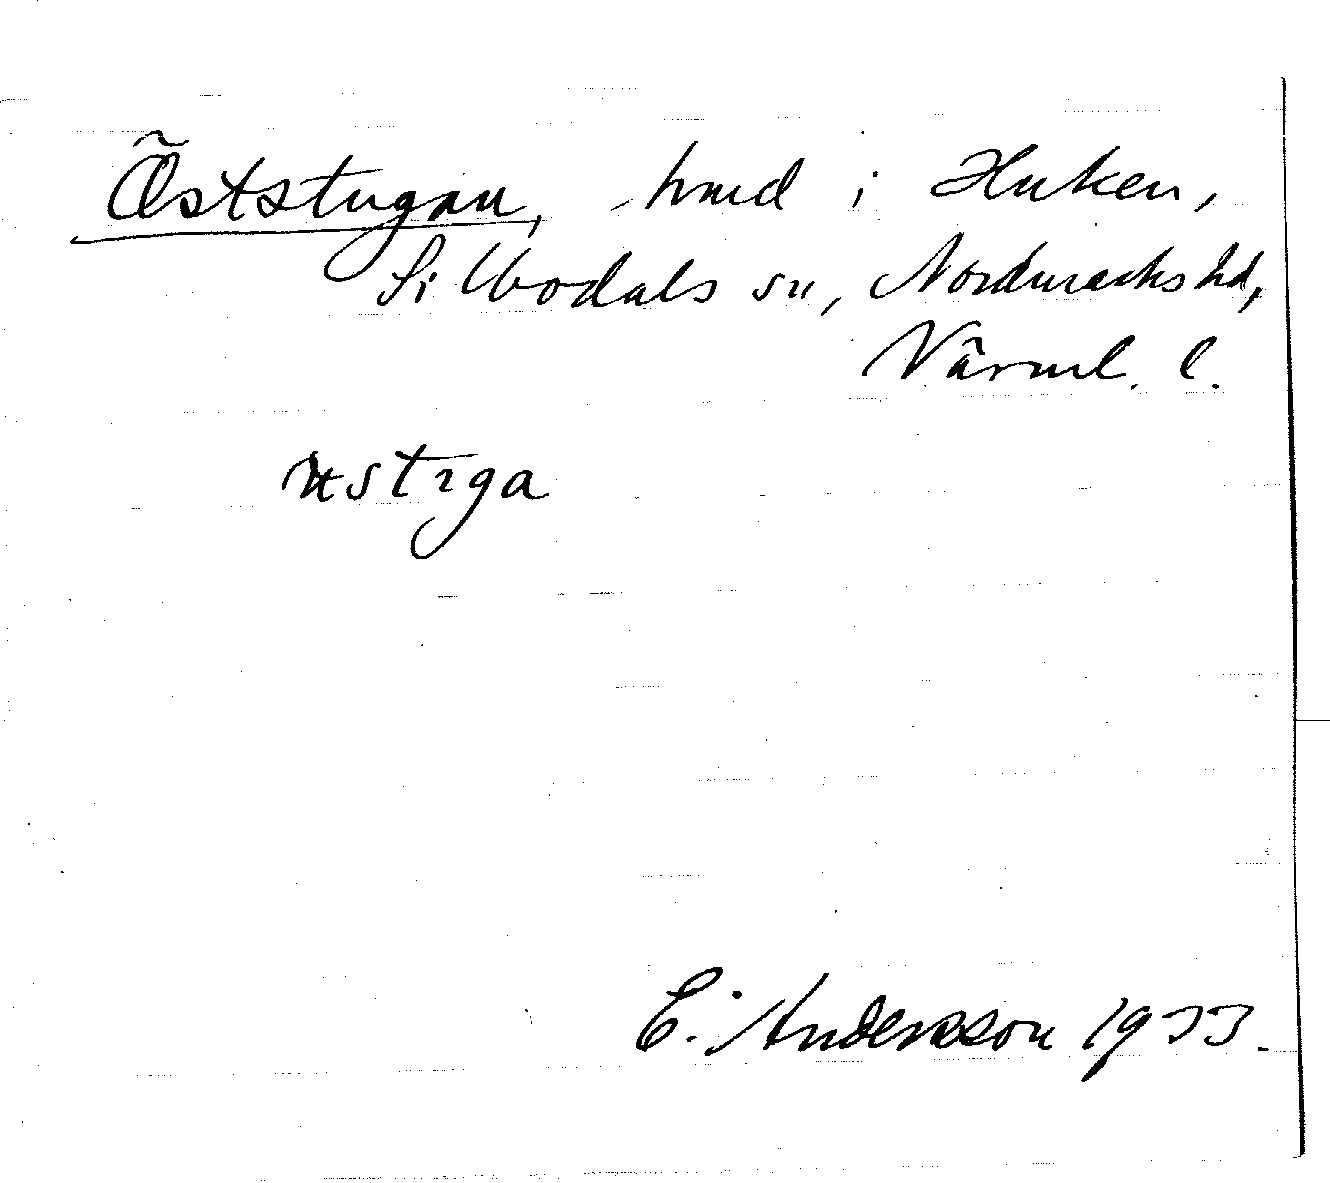 Öststugan, hmd i Huken,
Silbodals sn, Nordmarks hd,
Värml. l.
E. Andersson 1933.